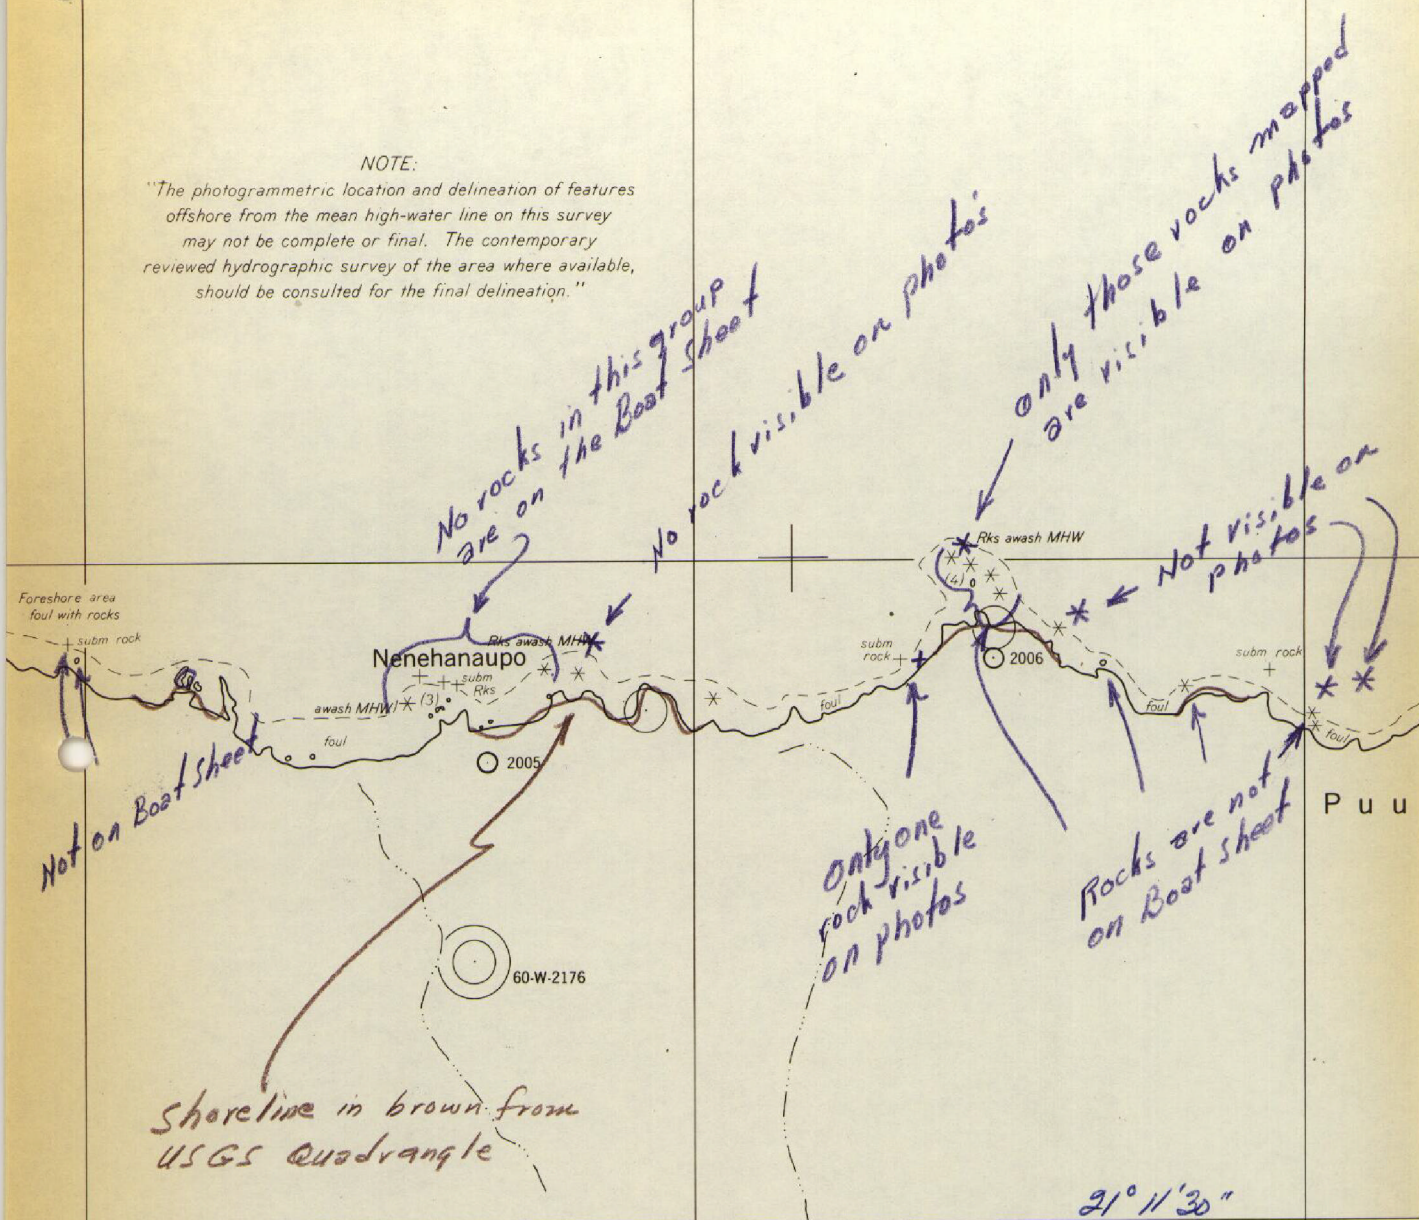 NOTE:
"The photogrammetric location and delineation of features
offshore from the mean high-water line on this survey
may not be complete or final. The contemporary
reviewed hydrographic survey of the area where available,
should be consulted for the final delineation."
No rocks in this group
are on the Boat Sheet
No rock visible on photo's
only those rocks mapped
are visible on photos
Not visible on
photos
Rks awash MHW
(4)
Foreshore area
foul with rocks
subm rock
Rks awash MHW
Nenehanaupo
subm
Rks
awash MHW
(3)
foul
2005
subm
rock
2006
subm rock
foul
foul
foul
Puu
Not on Boat Sheet
only one
rock visible
on photos
Rocks are not
on Boat Sheet
60-W-2176
Shoreline in brown from
USGS Quadrangle
21° 11' 30"